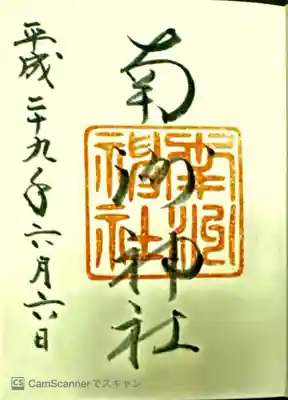 南洲神社
平成二十九年六月六日
南洲神社
CS CamScannerでスキャン